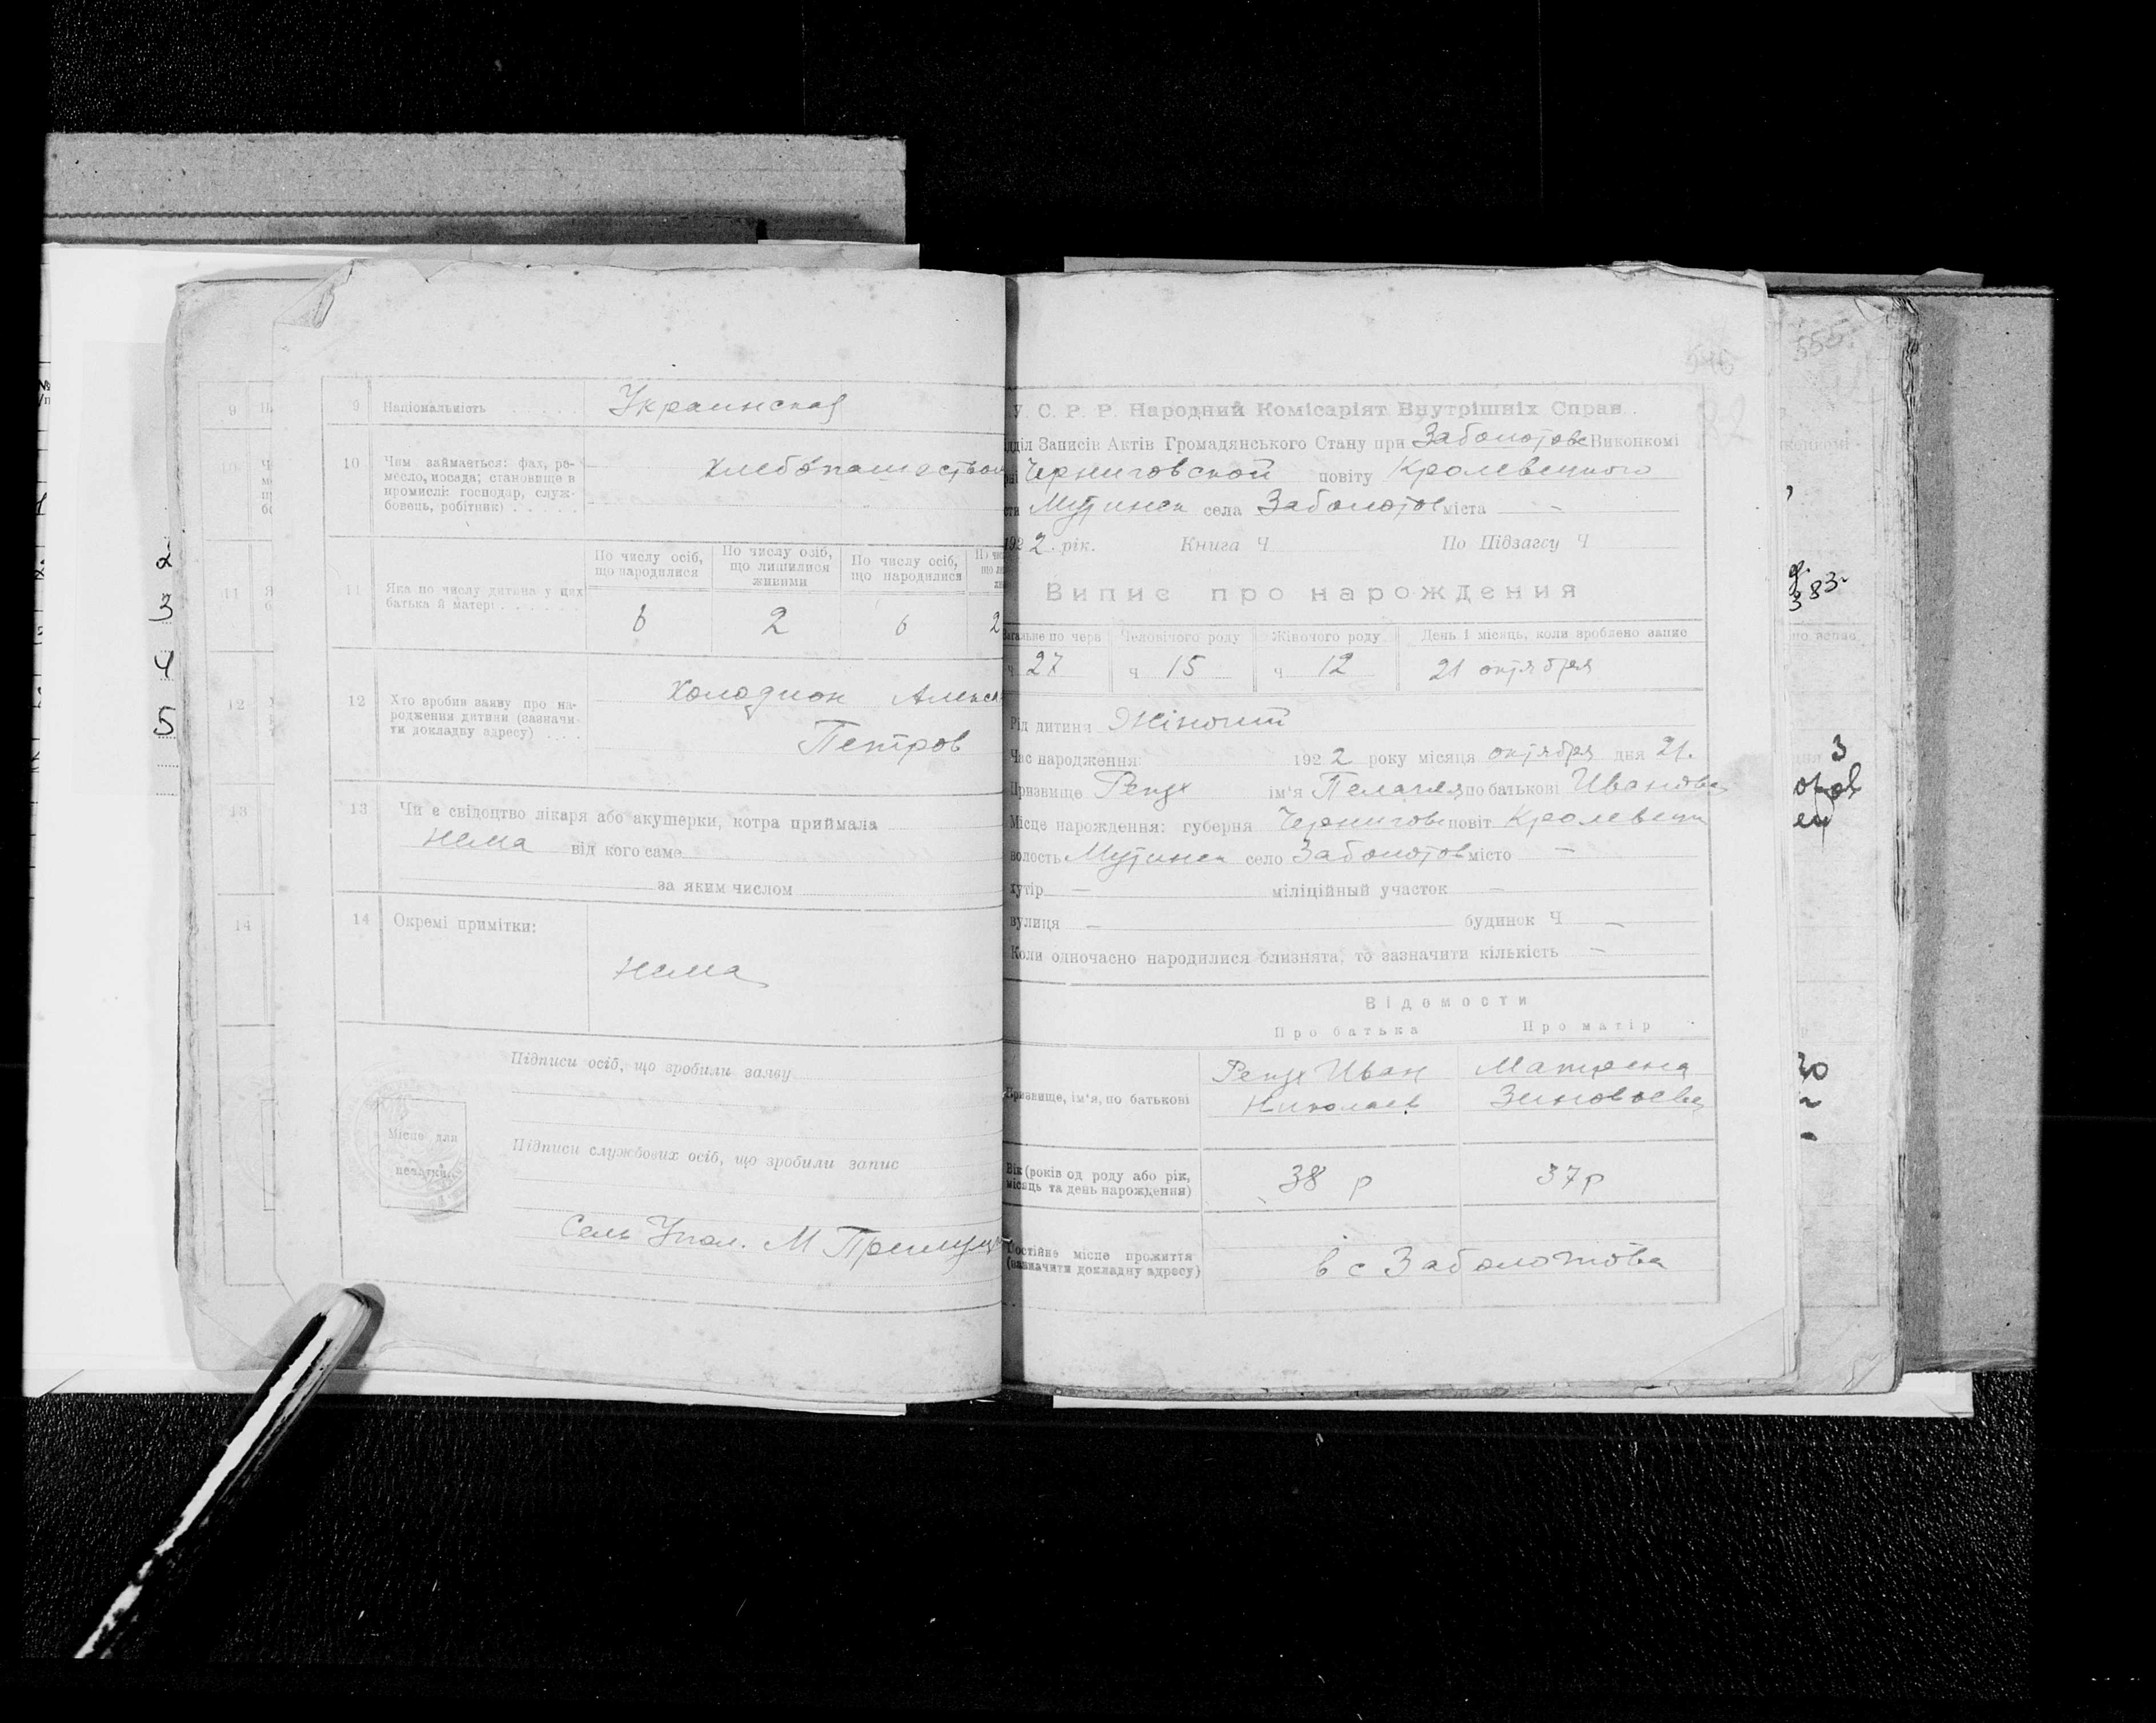 9 Національність Украинская
10 Чим займається: фах, ре-
месло, посада; становище в
промислі: господар, служ-
бовець, робітник) Хлебопашеством
11 Яка по числу дитина у цих
батька й матері
По числу осіб,
що народилися
По числу осіб,
що лишилися
живими
По числу осіб,
що народилися
6 2 6 2
12 Хто вробив заяву про на-
родження дитини (зазначи-
ти докладну адресу)
Холодион
Петров
13 Чи є свідоцтво лікаря або акушерки, котра приймала
Нема від кого саме
за яким числом
14 Окремі примітки:
Нема
Підписи осіб, що зробили заяву
Місце для
печатки
Підписи службових осіб, що зробили запис
Сель Упол. М
2
3
4
5
546
555
У. С. Р. Р. Народний Комісаріят Внутрішніх Справ
діл Записів Актів Громадянського Стану при Заболотове Виконкомі
Черниговской повіту Кролевецкого
Мутинск села Заболотов міста —
1922 рік. Книга Ч По Підзагсу Ч
Випис про нарождения
Загальне по черв Человічого роду Жіночого роду День і місяць, коли вроблено запис
ч 27 ч 15 ч 12 21 октября
Рід дитини Жіночий
Час народження 1922 року місяця октября дня 21.
Призвище ім'я Пелагия по батькові Иванова
Місце нарождення: губерня Чернигов повіт Кролевецк
волость Мутинск село Заболотов місто —
хутір — міліційный участок —
вулиця — будинок Ч —
Коли одночасно народилися близнята, то зазначити кількість —
Відомости
Про батька Про матір
Призвище, ім'я, по батькові
Иван
Николаев
Матрена
Зиновьева
Вік (років од роду або рік,
місяць та день нарождення) 38 р 37 р
Постійне місце прожиття
(зазначити докладну адресу) в с Заболотова